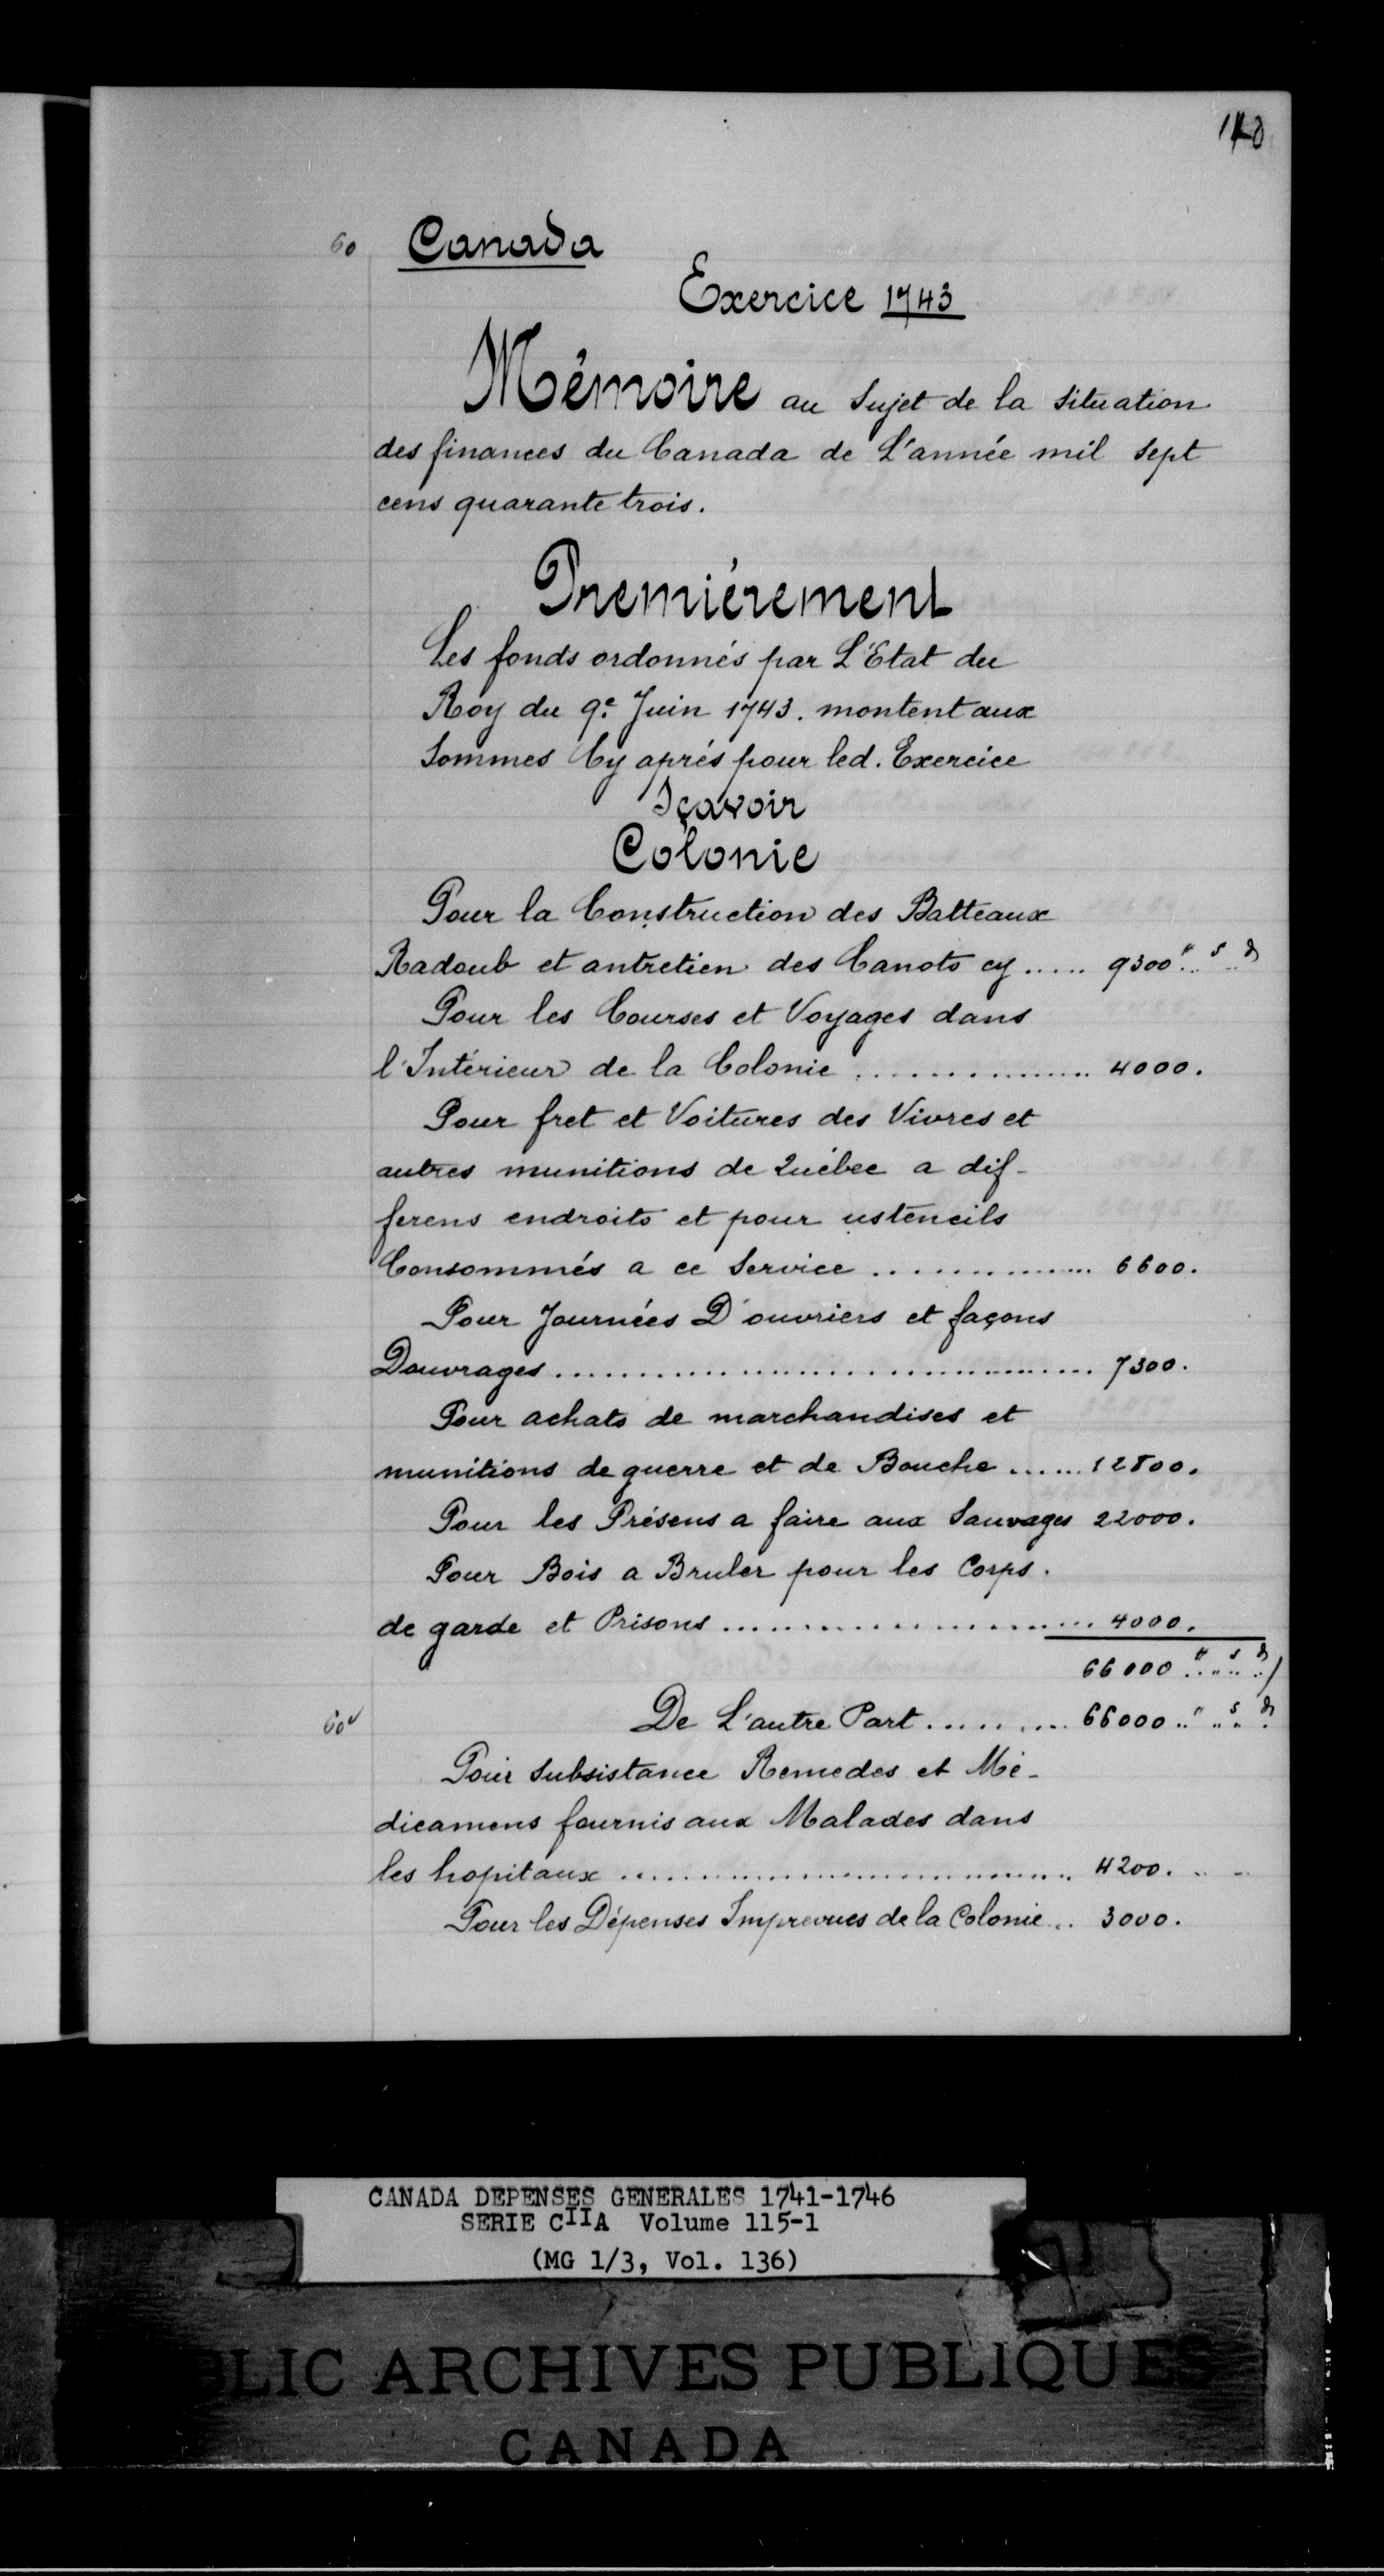 60 Canada
Exercice 1743
Mémoire au Sujet de la Situation
des finances du Canada de L'année mil Sept
cens quarante trois.
Premiérement
Les fonds ordonnés par L'Etat du
Roy du 9e. Juin 1743. montent aux
Sommes Cy aprés pour led. Exercice
Sçavoir
Colonie
Pour la Construction des Batteaux
Radoub et antretien des Canots cy ..... 9300 .. s .. d
Pour les Courses et Voyages dans
l'Intérieur de la Colonie ................ 4000.
Pour fret et Voitures des Vivres et
autres munitions de Québec a dif-
ferens endroits et pour ustencils
Consommés a ce Service ............... 6600.
Pour Journées D'ouvriers et façons
Douvrages ................................... 7300.
Pour achats de marchandises et
munitions de guerre et de Bouche ...... 12800.
Pour les Présens a faire aux Sauvages 22000.
Pour Bois a Bruler pour les Corps.
de garde et Prisons ......................... 4000.
66000 " s d
60v De L'autre Part .......... 66000 " s d
Pour Subsistance Remedes et Mé-
dicamens fournis aux Malades dans
les hopitaux ............................... 4200.
Pour les Dépenses Imprevues de la Colonie .. 3000.
CANADA DEPENSES GENERALES 1741-1746
SERIE CIIA Volume 115-1
(MG 1/3, Vol. 136)
BLIC ARCHIVES PUBLIQUES
CANADA